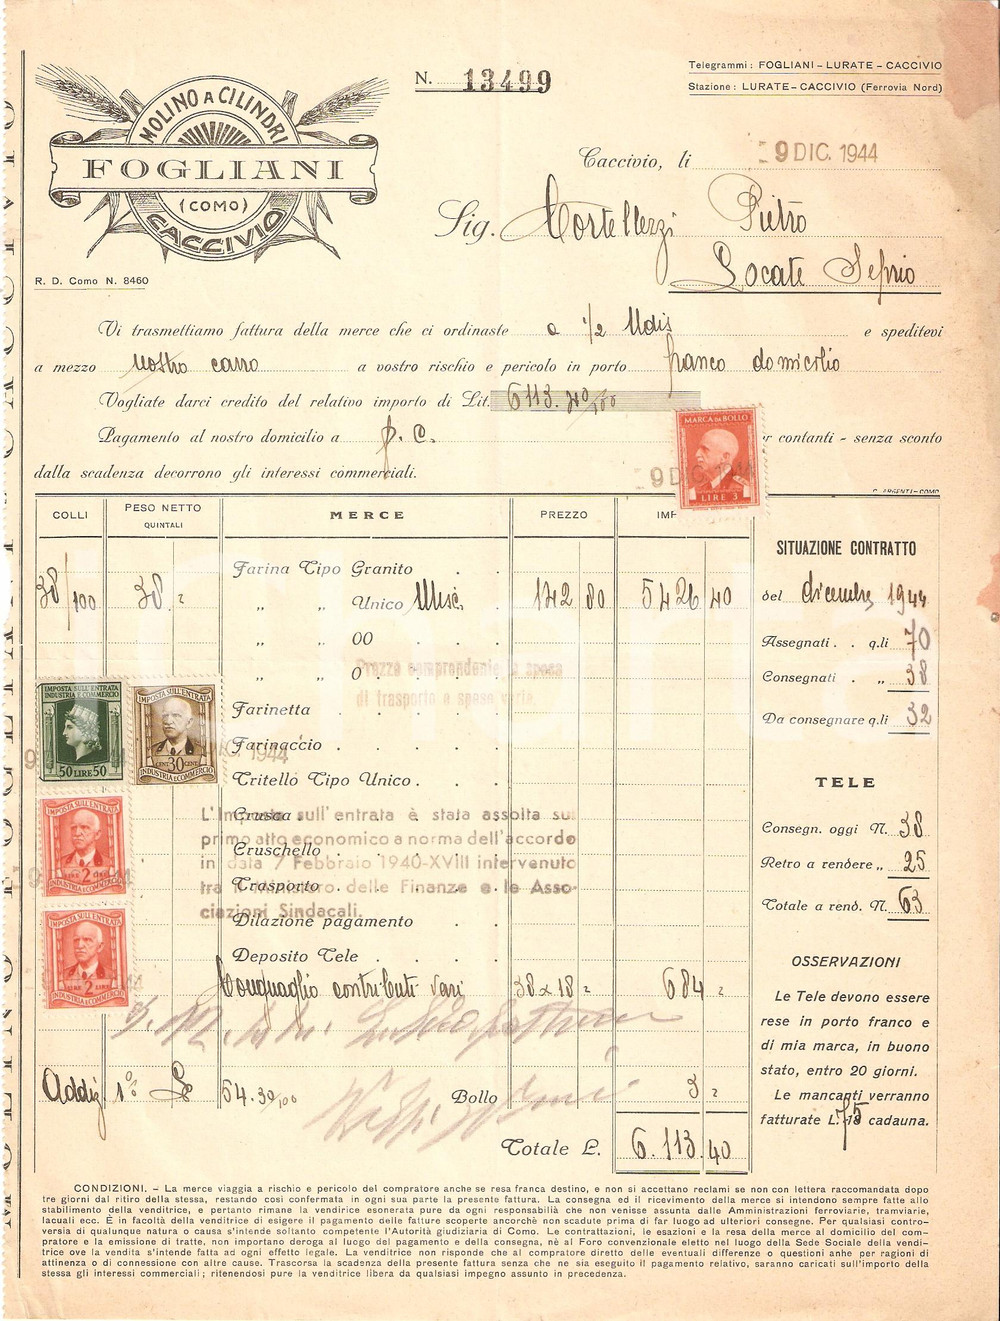 MOLINO A CILINDRI
FOGLIANI
(COMO)
CACCIVIO
R. D. Como N. 8460
N. 13499
Telegrammi: FOGLIANI - LURATE - CACCIVIO
Stazione: LURATE - CACCIVIO (Ferrovia Nord)
Caccivio, li 9 DIC. 1944
Sig. Cortellezzi Pietro
Locate Sefrio
Vi trasmettiamo fattura della merce che ci ordinaste a 1/2 e speditevi
a mezzo nostro carro a vostro rischio e pericolo in porto franco domicilio
Vogliate darci credito del relativo importo di Lit. 6113.40/100
Pagamento al nostro domicilio a p.c. per contanti - senza sconto
dalla scadenza decorrono gli interessi commerciali.
MARCA DA BOLLO
LIRE 3
9 DIC. 1944
C. ARGENTI - COMO
COLLI PESO NETTO QUINTALI MERCE PREZZO IMP
Farina Tipo Granito
38/100 38.= „ „ Unico 142 80 5426 40
„ „ 00
„ „ 0
Prezzo comprendente le spese
di trasporto e spese varie
Farinetta
Farinaccio
Tritello Tipo Unico
Crusca
Cruschello
Trasporto
Dilazione pagamento
Deposito Tele
L'Imposta sull'entrata è stata assolta sul
primo atto economico a norma dell'accordo
in data 7 Febbraio 1940-XVIII intervenuto
tra Ministero delle Finanze e le Asso-
ciazioni Sindacali.
Conguaglio contributi vari 38x18 = 684 =
Addiz 1% £ 54.30/100 Bollo 3 =
Totale £. 6.113.40
IMPOSTA SULL'ENTRATA
INDUSTRIA E COMMERCIO
50 LIRE 50
IMPOSTA SULL'ENTRATA
CENT 30 CENT
INDUSTRIA E COMMERCIO
IMPOSTA SULL'ENTRATA
LIRE 2 LIRE
INDUSTRIA E COMMERCIO
IMPOSTA SULL'ENTRATA
LIRE 2 LIRE
INDUSTRIA E COMMERCIO
SITUAZIONE CONTRATTO
del dicembre 1944
Assegnati . . q.li 70
Consegnati . „ 38
Da consegnare q.li 32
TELE
Consegn. oggi N. 38
Retro a rendere „ 25
Totale a rend. N. 63
OSSERVAZIONI
Le Tele devono essere
rese in porto franco e
di mia marca, in buono
stato, entro 20 giorni.
Le mancanti verranno
fatturate L. 75 cadauna.
CONDIZIONI. - La merce viaggia a rischio e pericolo del compratore anche se resa franca destino, e non si accettano reclami se non con lettera raccomandata dopo
tre giorni dal ritiro della stessa, restando così confermata in ogni sua parte la presente fattura. La consegna ed il ricevimento della merce si intendono sempre fatte allo
stabilimento della venditrice, e pertanto rimane la vendirice esonerata pure da ogni responsabilià che non venisse assunta dalle Amministrazioni ferroviarie, tramviarie,
lacuali ecc. È in facoltà della venditrice di esigere il pagamento delle fatture scoperte ancorchè non scadute prima di far luogo ad ulteriori consegne. Per qualsiasi contro-
versia di qualunque natura o causa s'intende soltanto competente l'Autorità giudiziaria di Como. Le contrattazioni, le esazioni e la resa della merce al domicilio del com-
pratore e la emissione di tratte, non importano deroga al luogo del pagamento e della consegna, nè al Foro convenzionale eletto nel luogo della Sede Sociale della vendi-
trice ove la vendita s'intende fatta ad ogni effetto legale. La venditrice non risponde che al compratore diretto delle eventuali differenze o questioni anhe per ragioni di
attinenza o di connessione con altre cause. Trascorsa la scadenza della presente fattura senza che ne sia eseguito il pagamento relativo, saranno caricati sull'importo della
stessa gli interessi commerciali; ritenendosi pure la venditrice libera da qualsiasi impegno assunto in precedenza.